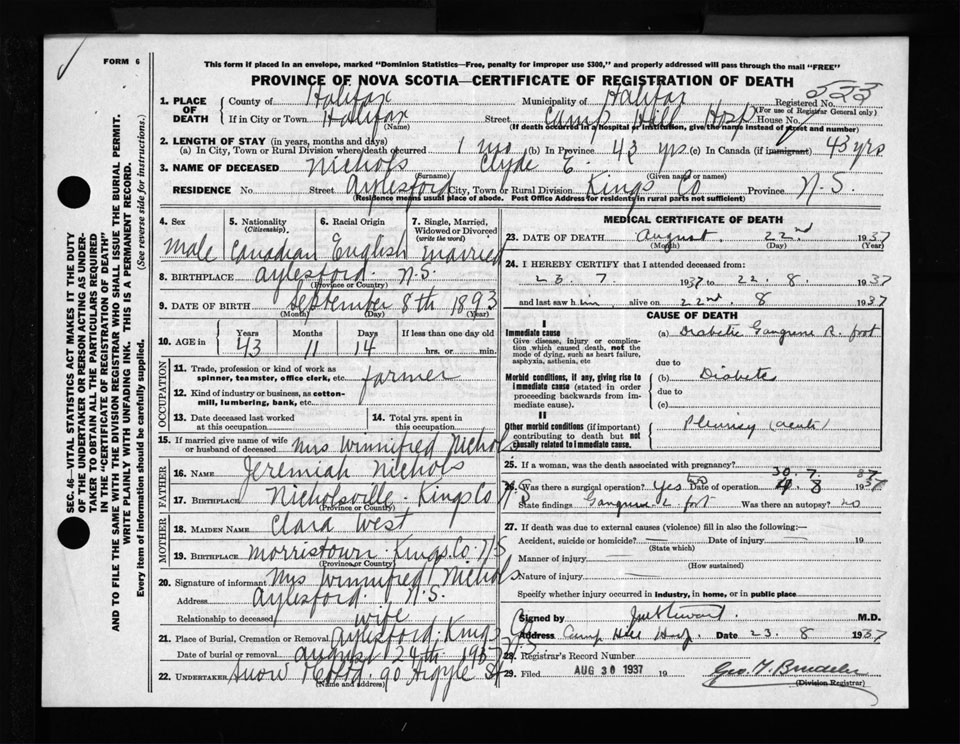 FORM 6
This form if placed in an envelope, marked "Dominion Statistics—Free, penalty for improper use $300," and properly addressed will pass through the mail "FREE"
PROVINCE OF NOVA SCOTIA—CERTIFICATE OF REGISTRATION OF DEATH
523
1. PLACE OF DEATH
County of Halifax Municipality of Halifax Registered No.
(For use of Registrar General only)
If in City or Town Halifax Street Camp Hill Hosp House No.
(Name) (If death occurred in a hospital or institution, give the name instead of street and number)
2. LENGTH OF STAY (in years, months and days)
(a) In City, Town or Rural Division where death occurred 1 mo (b) In Province 43 yrs (c) In Canada (if immigrant) 43 yrs
3. NAME OF DECEASED Nichols Clyde E.
(Surname) (Given name or names)
RESIDENCE No. Street Aylesford City, Town or Rural Division Kings Co Province N.S.
(Residence means usual place of abode. Post Office Address for residents in rural parts not sufficient)
4. Sex 5. Nationality (Citizenship) 6. Racial Origin 7. Single, Married, Widowed or Divorced (write the word)
Male Canadian English Married
8. BIRTHPLACE Aylesford. N.S.
(Province or Country)
9. DATE OF BIRTH September 8th 1893
(Month) (Day) (Year)
10. AGE in Years Months Days If less than one day old
43 11 14 hrs. or min.
OCCUPATION
11. Trade, profession or kind of work as spinner, teamster, office clerk, etc. farmer
12. Kind of industry or business, as cotton-mill, lumbering, bank, etc.
13. Date deceased last worked at this occupation
14. Total yrs. spent in this occupation
15. If married give name of wife or husband of deceased Mrs Winnifred Nichols
FATHER
16. NAME Jeremiah Nichols
17. BIRTHPLACE Nicholsville. Kings Co N.S
(Province or Country)
MOTHER
18. MAIDEN NAME Clara West
19. BIRTHPLACE Morristown. Kings. Co. N/S
(Province or Country)
20. Signature of informant Mrs Winnifred Nichols
Address Aylesford. N.S.
Relationship to deceased wife
21. Place of Burial, Cremation or Removal Aylesford. Kings Co
Date of burial or removal August 24th 1937 N.S.
22. UNDERTAKER Snow 90 Argyle St
(Name and address)
MEDICAL CERTIFICATE OF DEATH
23. DATE OF DEATH August. 22nd 1937
(Month) (Day) (Year)
24. I HEREBY CERTIFY that I attended deceased from:
23. 7. 1937 to 22. 8. 1937
and last saw him alive on 22nd. 8 1937
CAUSE OF DEATH
I
Immediate cause
Give disease, injury or complication which caused death, not the mode of dying, such as heart failure, asphyxia, asthenia, etc
(a) Diabetic Gangrene R. foot
due to
Morbid conditions, if any, giving rise to immediate cause (stated in order proceeding backwards from immediate cause).
(b) Diabetes
due to
(c)
II
Other morbid conditions (if important) contributing to death but not causally related to immediate cause.
Pleurisy (acute)
25. If a woman, was the death associated with pregnancy?
30. 7. 37
26. Was there a surgical operation? Yes Date of operation 8 1937
State findings Gangrene foot Was there an autopsy? no
27. If death was due to external causes (violence) fill in also the following:—
Accident, suicide or homicide? — Date of injury — 19
(State which)
Manner of injury —
(How sustained)
Nature of injury —
Specify whether injury occurred in industry, in home, or in public place
Signed by Stewart. M.D.
Address Camp Hill Hosp. Date 23. 8 1937
28. Registrar's Record Number
29. Filed AUG 30 1937 19
(Division Registrar)
SEC. 46—VITAL STATISTICS ACT MAKES IT THE DUTY
OF THE UNDERTAKER OR PERSON ACTING AS UNDERTAKER TO OBTAIN ALL THE PARTICULARS REQUIRED
IN THE "CERTIFICATE OF REGISTRATION OF DEATH"
AND TO FILE THE SAME WITH THE DIVISION REGISTRAR WHO SHALL ISSUE THE BURIAL PERMIT.
WRITE PLAINLY WITH UNFADING INK. THIS IS A PERMANENT RECORD.
Every item of information should be carefully supplied. (See reverse side for instructions.)